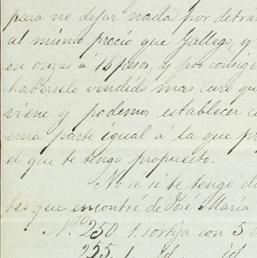 para no dejar nada por detrás
al mismo precio que Gallego, y
en onzas a 16 pesos, y por consig
habérselo vendido mas caro qu
viene y podemos establecer c
una parte igual á la que pr
el que te tengo propuesto.
No sé si te tengo d
bes que encontré de José María
Nº 250. 1. sortija con 5 o
225. 1 id. id.